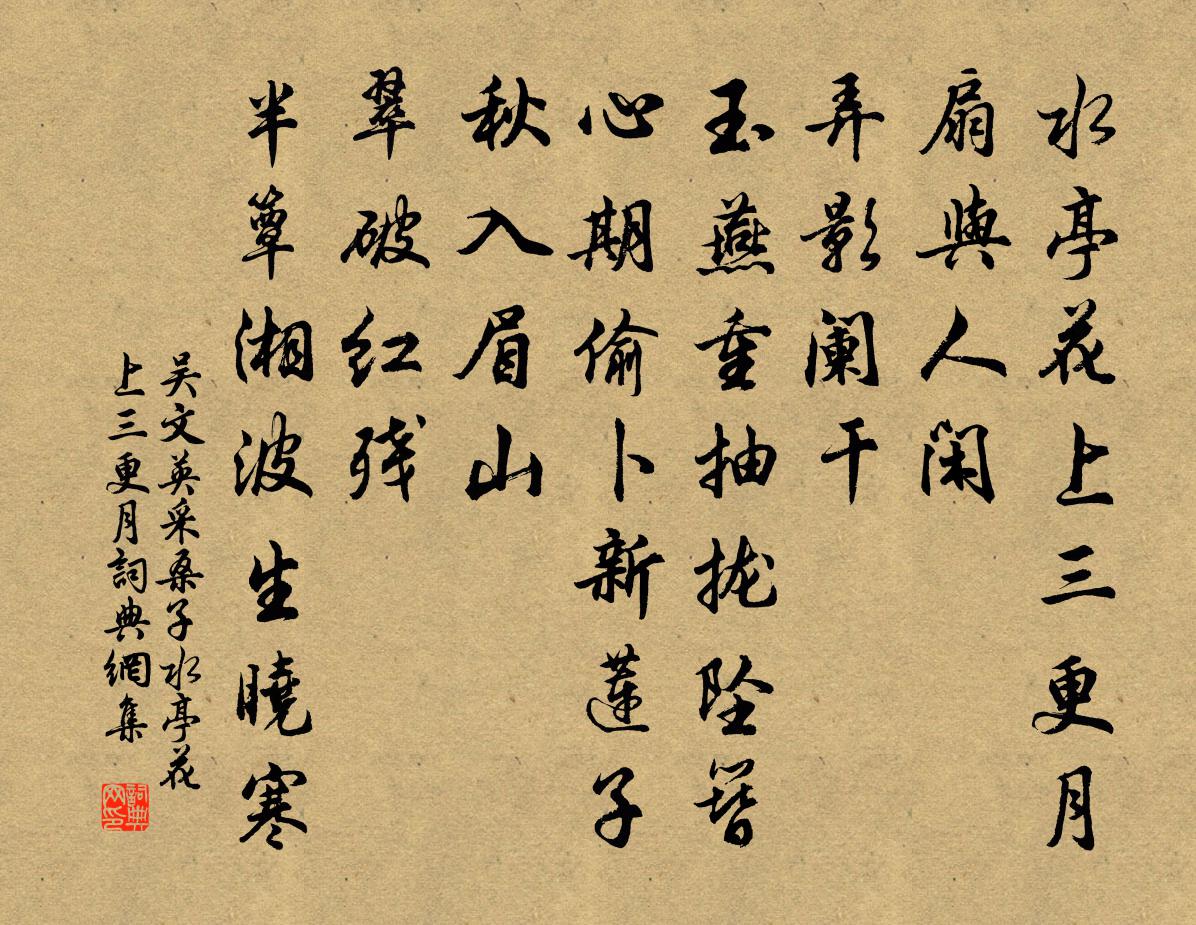 水亭花上三更月
扇與人闲
弄影阑干
玉燕重抽拢坠簪
心期偷卜新莲子
秋入眉山
翠破红残
半簟湘波生曉寒
吴文英采桑子水亭花
上三更月詞典網集
詞典网印